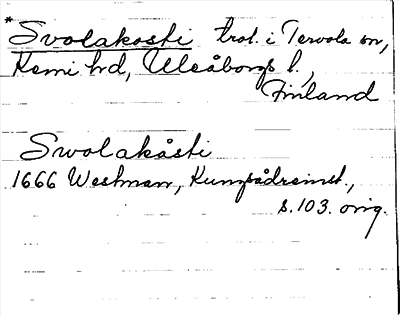 *Svolakoski trol. i Tervola sn,
Kemi hd, Uleåborgs l.,
Finland
Swolakåski
1666 Westman, Kunpådreinst.,
s. 103. orig.